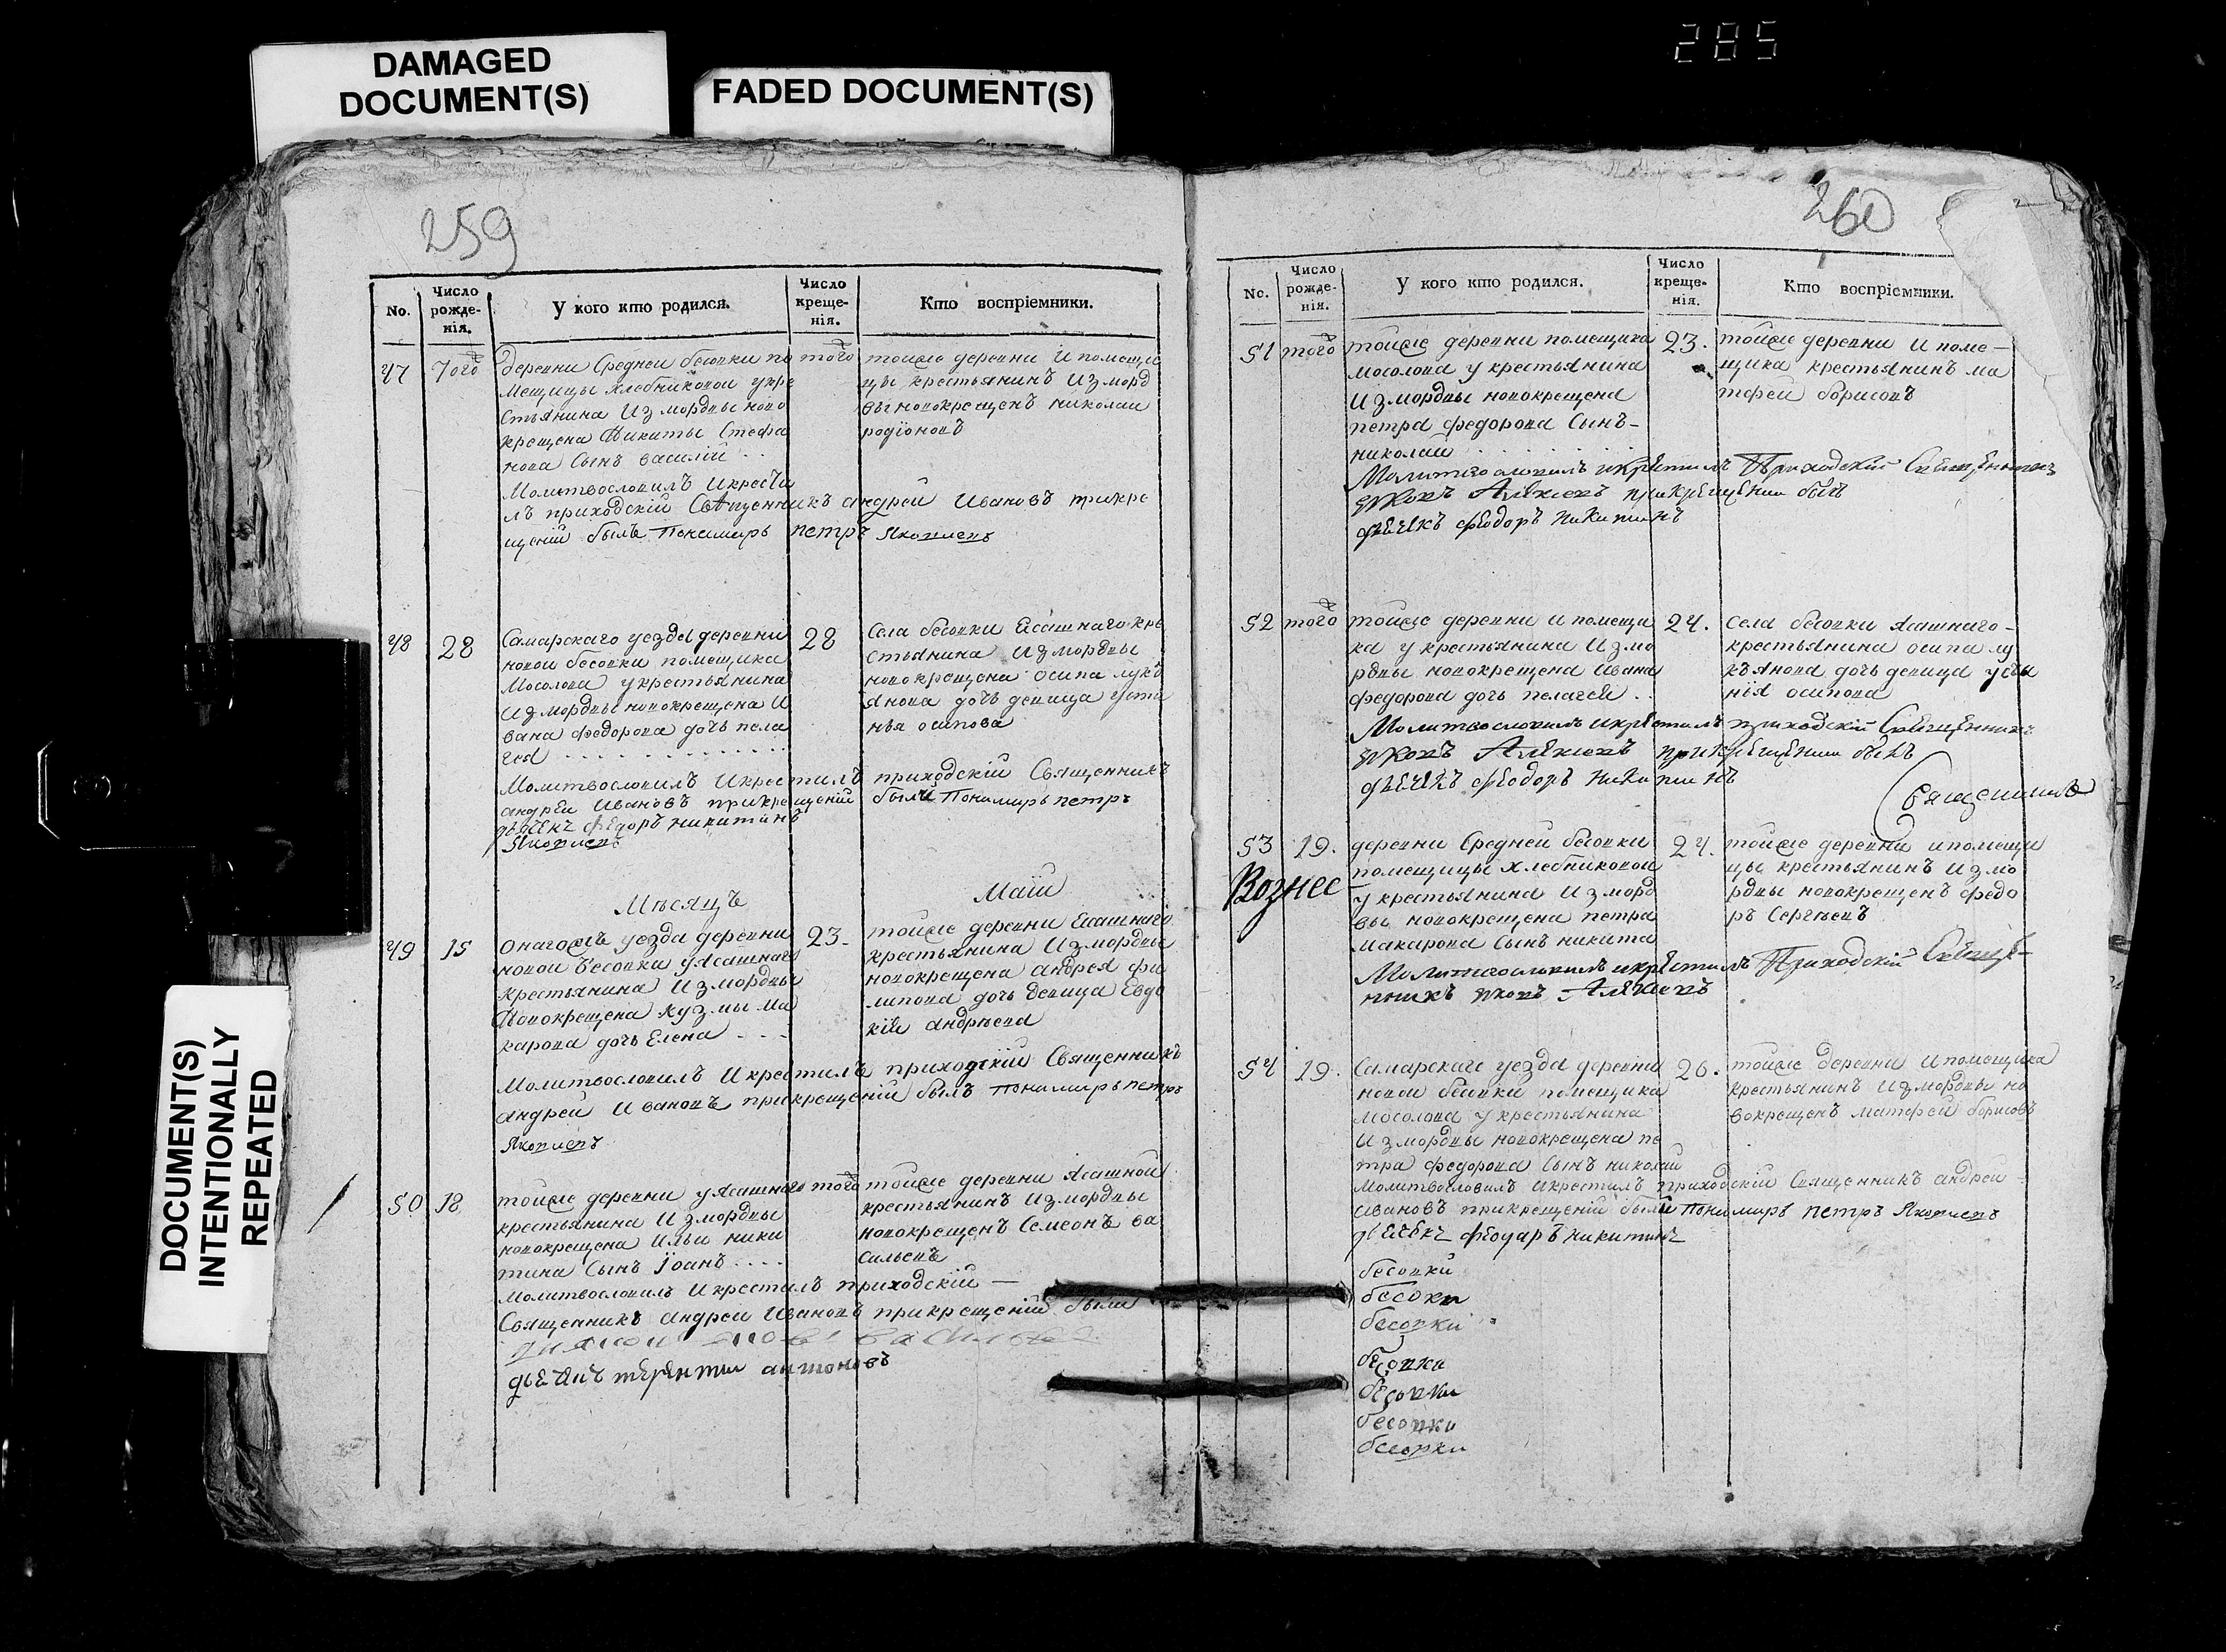 285
DAMAGED
DOCUMENT(S)
FADED DOCUMENT(S)
DOCUMENT(S)
INTENTIONALLY
REPEATED
259
No.
Число
рожде-
нія.
У кого кто родился.
Число
креще-
нія.
Кто воспріемники.
47
того
деревни Средней бесовки по
мещицы хлебниковой укре
стьянина Измордвы ново
крещена Никиты Стефа
нова Сынъ василій
того
тойже деревни Ипомещи
цы крестьянинъ Изморд
вы новокрещенъ николаи
родіоновъ
Молитвословилъ Икрести
лъ приходскій Священникъ андрей Ивановъ прикре
щеній былъ Пономарь петръ Яковлевъ
48
28
Самарскаго уезда деревни
новой бесовки помещика
Мосолова укрестьянина
Измордвы новокрещена И
вана федорова дочь пела
гея
28
Села бесовки Ясашнаго кре
стьянина Измордвы
новокрещена осипа лукъ
янова дочь девица усти
нья осипова
Молитвословилъ Икрестилъ приходскій Священникъ
андрей Ивановъ прикрещеній были Пономарь петръ
дьячекъ федоръ никитинъ
Яковлевъ
Месяцъ Маій
49
15
Онагожъ уезда деревни
новой бесовки уясашнаго
крестьянина Измордвы
Новокрещена кузмы ма
карова дочь Елена
23.
тойже деревни Ясашнаго
крестьянина Измордвы
новокрещена андрея фи
липова дочь девица Евдо
кія андреева
Молитвословилъ Икрестилъ приходскій Священникъ
андрей Ивановъ прикрещеній былъ Пономарь петръ
Яковлевъ
50
18
тойже деревни уясашнаго
крестьянина Измордвы
новокрещена Ильи ники
тина Сынъ Іоанъ
того
тойже деревни Ясашной
крестьянинъ Измордвы
новокрещенъ Семеонъ ва
сильевъ
Молитвословилъ Икрестилъ приходскій
Священникъ андрей Ивановъ прикрещеній были
терентей антоновъ
260
No.
Число
рожде-
нія.
У кого кто родился.
Число
креще-
нія.
Кто воспріемники.
51
того
тойже деревни помещика
мосолова укрестьянина
Измордвы новокрещена
петра федорова Сынъ
николай
23.
тойже деревни Ипоме-
щика крестьянинъ ма
тфей борисовъ
Молитвословилъ икрестилъ Приходский Священникъ
яковъ Алексевъ прикрещении былъ
дьечекъ феодоръ никитинъ
52
того
тойже деревни Ипомещи
ка укрестьянина Измо
рдвы новокрещена Ивана
федорова дочь пелагея
24.
Села бесовки Ясашнаго
крестьянина осипа лу
къянова дочь девица усти
нія осипова
Молитвословилъ икрестилъ приходскій Священникъ
яковъ Алексевъ прикрещении былъ
дьечекъ феодоръ никитинъ
Священникъ
53
19.
деревни Средней бесовки
помещицы хлебниковой
укрестьянина Изморд
вы новокрещена петра
макарова Сынъ никита
24.
тойже деревни ипомещи
цы крестьянинъ Измо
рдвы новокрещенъ федо
ръ Сергеевъ
Вознес
Молитвословилъ икрестилъ Приходскій Священ-
никъ яковъ Алексевъ
54
19.
Самарскаго уезда деревни
новой бесовки помещика
мосолова укрестьянина
Измордвы новокрещена пе
тра федорова Сынъ николай
26.
тойже деревни Ипомещика
крестьянинъ Измордвы но
вокрещенъ матфей борисовъ
Молитвословилъ Икрестилъ приходскій Священникъ андрей
Ивановъ прикрещеній были Пономарь петръ Яковлевъ
дьечекъ феодаръ никитинъ
бесовки
бесовки
бесовки
бесовки
бесовки
бесовки
бесовки